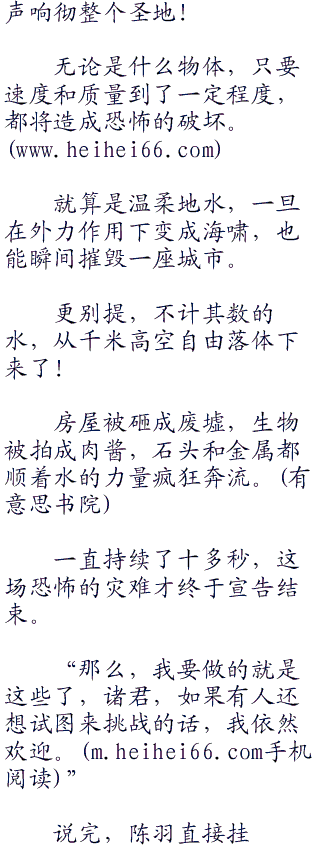 声响彻整个圣地！
无论是什么物体，只要
速度和质量到了一定程度，
都将造成恐怖的破坏。
(www.heihei66.com)
就算是温柔地水，一旦
在外力作用下变成海啸，也
能瞬间摧毁一座城市。
更别提，不计其数的
水，从千米高空自由落体下
来了！
房屋被砸成废墟，生物
被拍成肉酱，石头和金属都
顺着水的力量疯狂奔流。(有
意思书院)
一直持续了十多秒，这
场恐怖的灾难才终于宣告结
束。
“那么，我要做的就是
这些了，诸君，如果有人还
想试图来挑战的话，我依然
欢迎。(m.heihei66.com手机
阅读)”
说完，陈羽直接挂